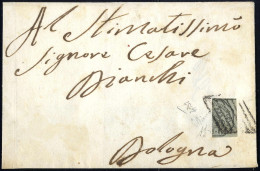 Al Stimatissimo
Signore Cesare
Bianchi
Bologna